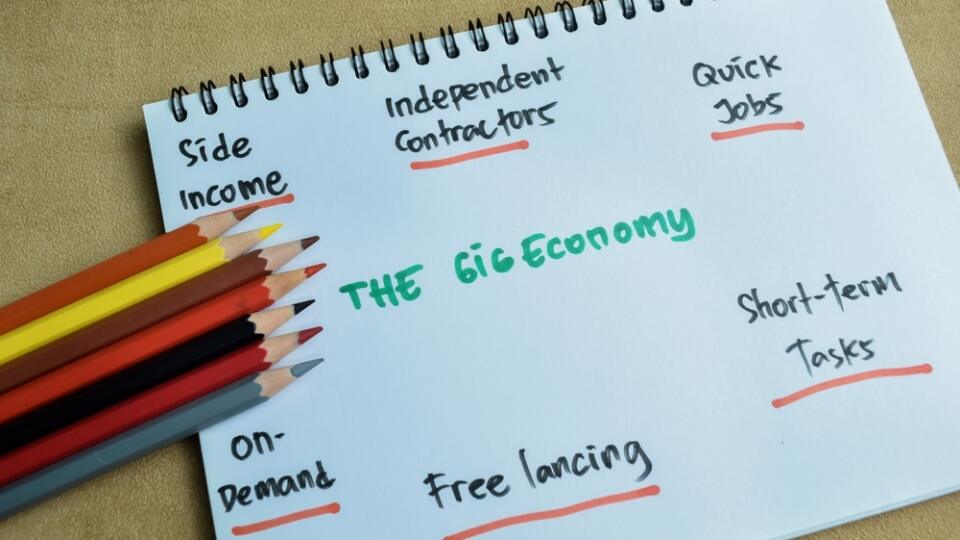 Side
Income
Independent
Contractors
Quick
Jobs
THE GiG Economy
Short-term
Tasks
On-
Demand
Free lancing